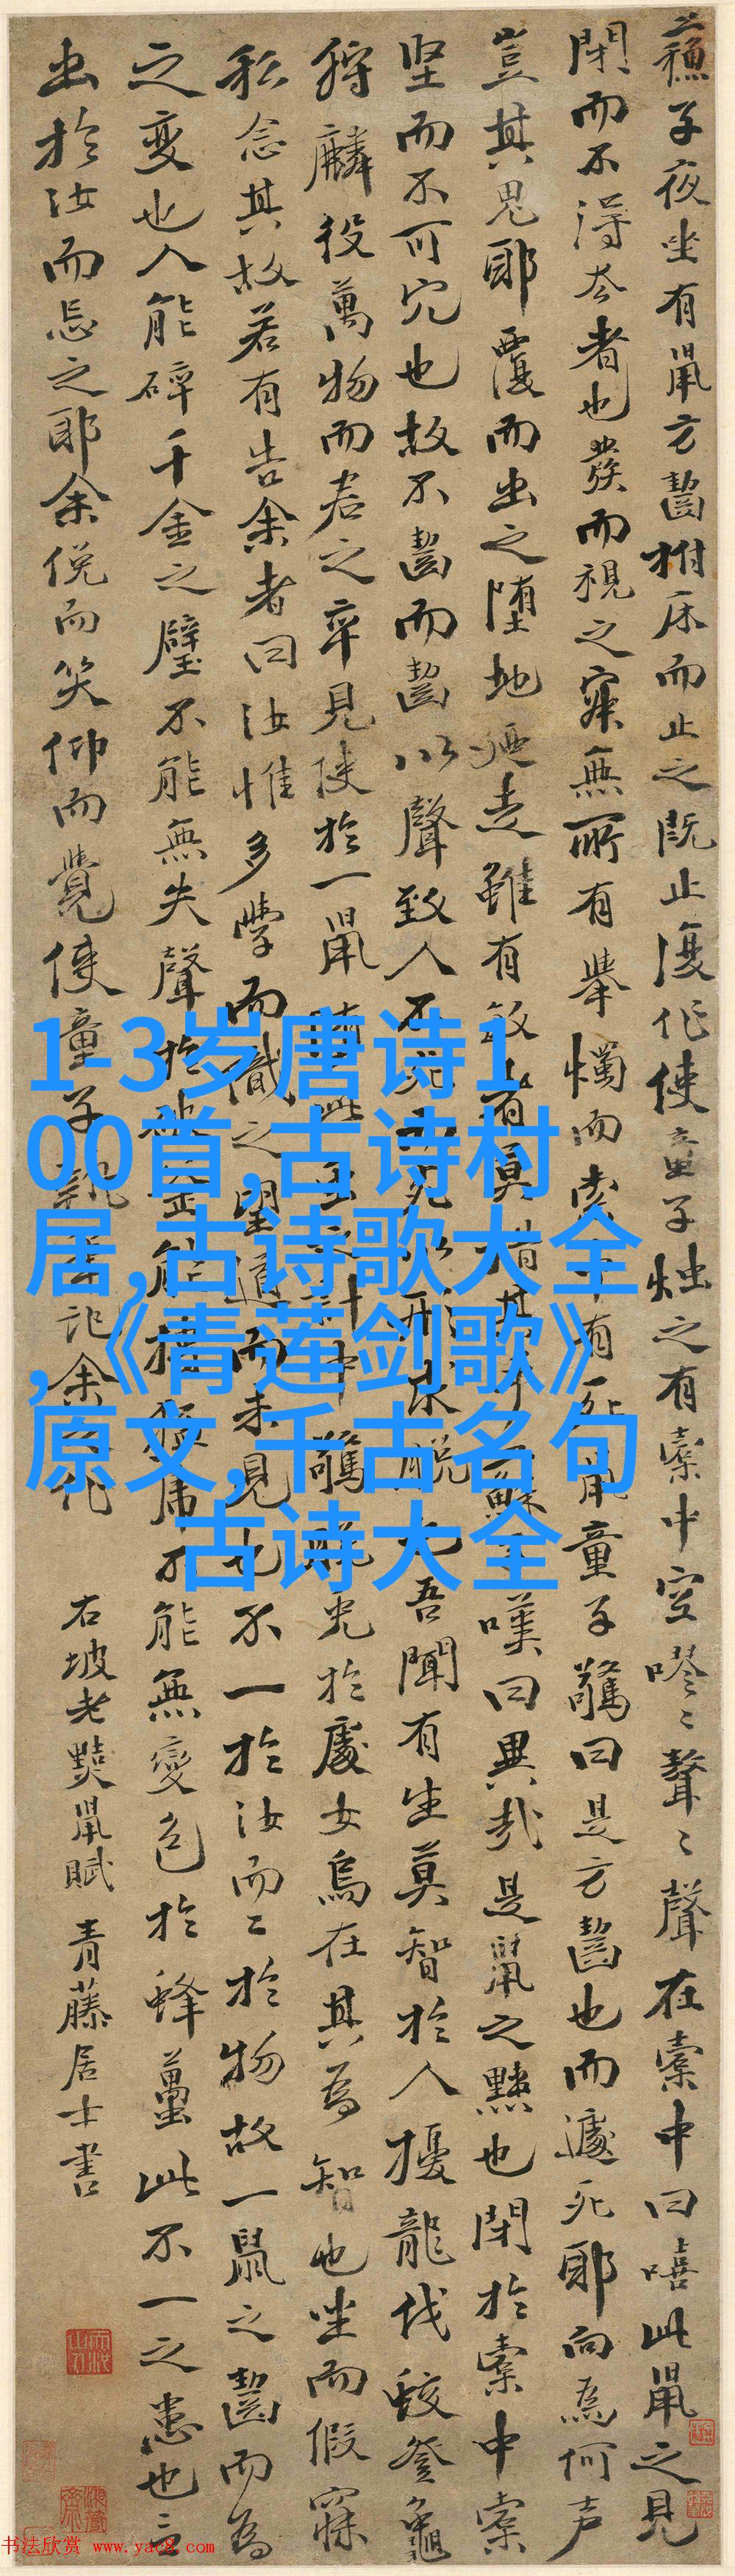 蘓子夜坐有鼠方齧拊床而止之既止復作使童子燭之有橐中空嘐〻聱〻聲在橐中曰嘻此鼠之見
閉而不得去者也發而視之寂無所有舉燭而索中有死鼠童子驚曰是方齧也而遽死耶向為何声
豈其鬼耶覆而出之墮地廼走雖有敏者莫措其手蘇子嘆曰異哉是鼠之黠也閉於橐中橐
坚而不可穴也故不齧而齧以聲致人不死而死以形求脫也吾聞有生莫智於人擾龍伐蛟登龜
狩麟役萬物而君之卒見使於一鼠墮此虫之計中驚脫兔於處女烏在其為智也坐而假寐
私念其故若有告余者曰汝惟多學而識之望道而未見也不一於汝而二於物故一鼠之齧而為
之變也人能碎千金之璧不能無失聲於破釜能搏猛虎不能無變色於蜂蠆此不一之患也言
出於汝而忘之耶余俛而笑仰而覺使童子執筆記余之作
右坡老黠鼠賦 青藤居士書
1-3岁唐诗1
00首,古诗村
居,古诗歌大全
,《青莲剑歌》
原文,千古名句
古诗大全
书法欣赏 www.yac8.com